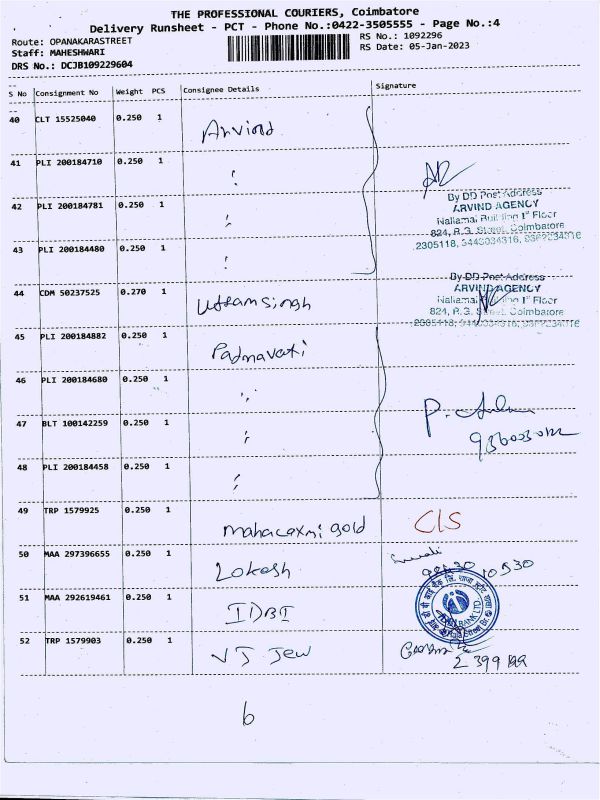 THE PROFESSIONAL COURIERS, Coimbatore
Delivery Runsheet - PCT - Phone No.:0422-3505555 - Page No.:4
Route: OPANAKARASTREET
Staff: MAHESHWARI
DRS No.: DCJB109229604
RS No.: 1092296
RS Date: 05-Jan-2023
S No Consignment No Weight PCS Consignee Details Signature
40 CLT 15525040 0.250 1 Arvind
41 PLI 200184710 0.250 1 "
42 PLI 200184781 0.250 1 "
43 PLI 200184480 0.250 1 "
By DD Post Address
ARVIND AGENCY
Nallamai Building 1st Floor
824, R.G. Street, Coimbatore
2305118,
44 CDM 50237525 0.270 1 Uttam Singh
By DD Post Address
ARVIND AGENCY
Nallamai Building 1st Floor
824, R.G. Street, Coimbatore
45 PLI 200184882 0.250 1 Padmavati
46 PLI 200184680 0.250 1 "
47 BLT 100142259 0.250 1 "
48 PLI 200184458 0.250 1 "
49 TRP 1579925 0.250 1 mahalaxmi gold C/S
50 MAA 297396655 0.250 1 Lokesh
51 MAA 292619461 0.250 1 IDBI
52 TRP 1579903 0.250 1 VJ Jew
2399199
6